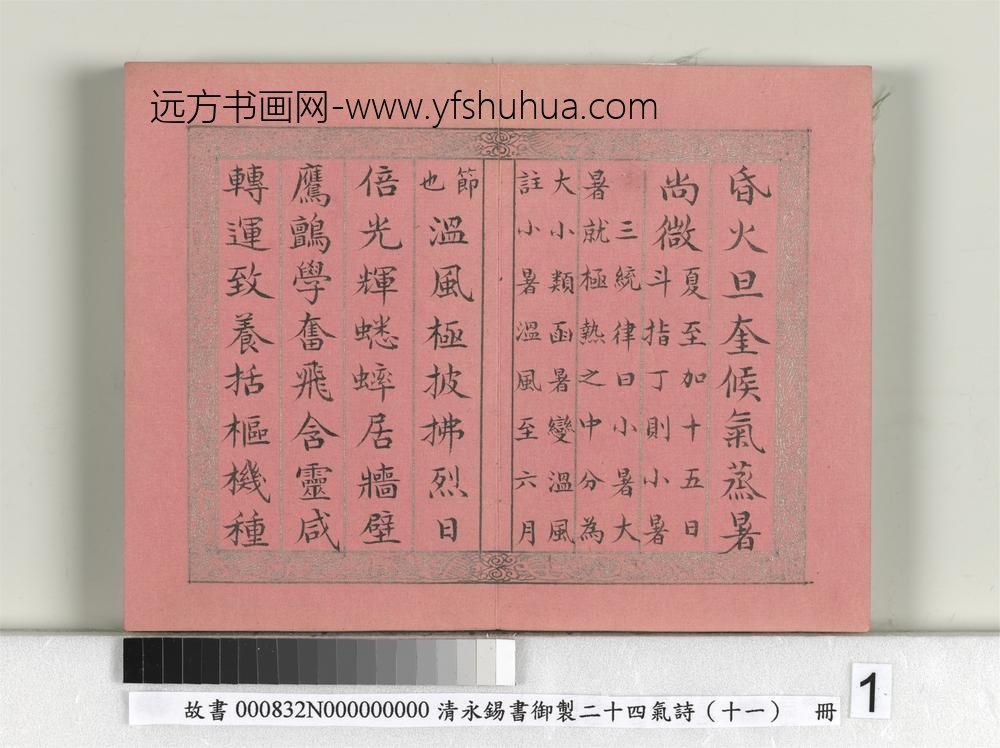 远方书画网-www.yfshuhua.com
昏火旦奎候氣蒸暑
尚微
夏至加十五日
斗指丁則小暑
三統律曰小暑大
暑就極熱之中分為
大小類函暑變溫風
註小暑溫風至六月
節
也
溫風極披拂烈日
倍光輝蟋蟀居牆壁
鷹鸇學奮飛含靈咸
轉運致養括樞機種
故書 000832N000000000 清永錫書御製二十四氣詩（十一） 冊
1